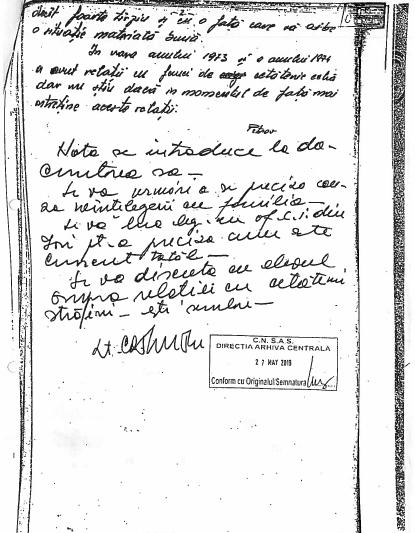 decît foarte tîrziu și cu o fată care să aibe
o situație materială bună.
În vara anului 1973 și a anului 1974
a avut relații cu femei de cetățenie
dar nu știu dacă în momentul de față mai
întreține aceste relații.
Nota se introduce la do-
cumentarea sa —
Se va urmări a se preciza cau-
za neînțelegerii cu familia —
Se va lua leg. cu of. C.I. din
pt. a preciza cum este
cunoscut tatăl —
Se va discuta cu elevul
asupra relației cu cetățeni
străini —
Lt.
C.N.S.A.S.
DIRECTIA ARHIVA CENTRALA
27 MAY 2019
Conform cu Originalul Semnatura